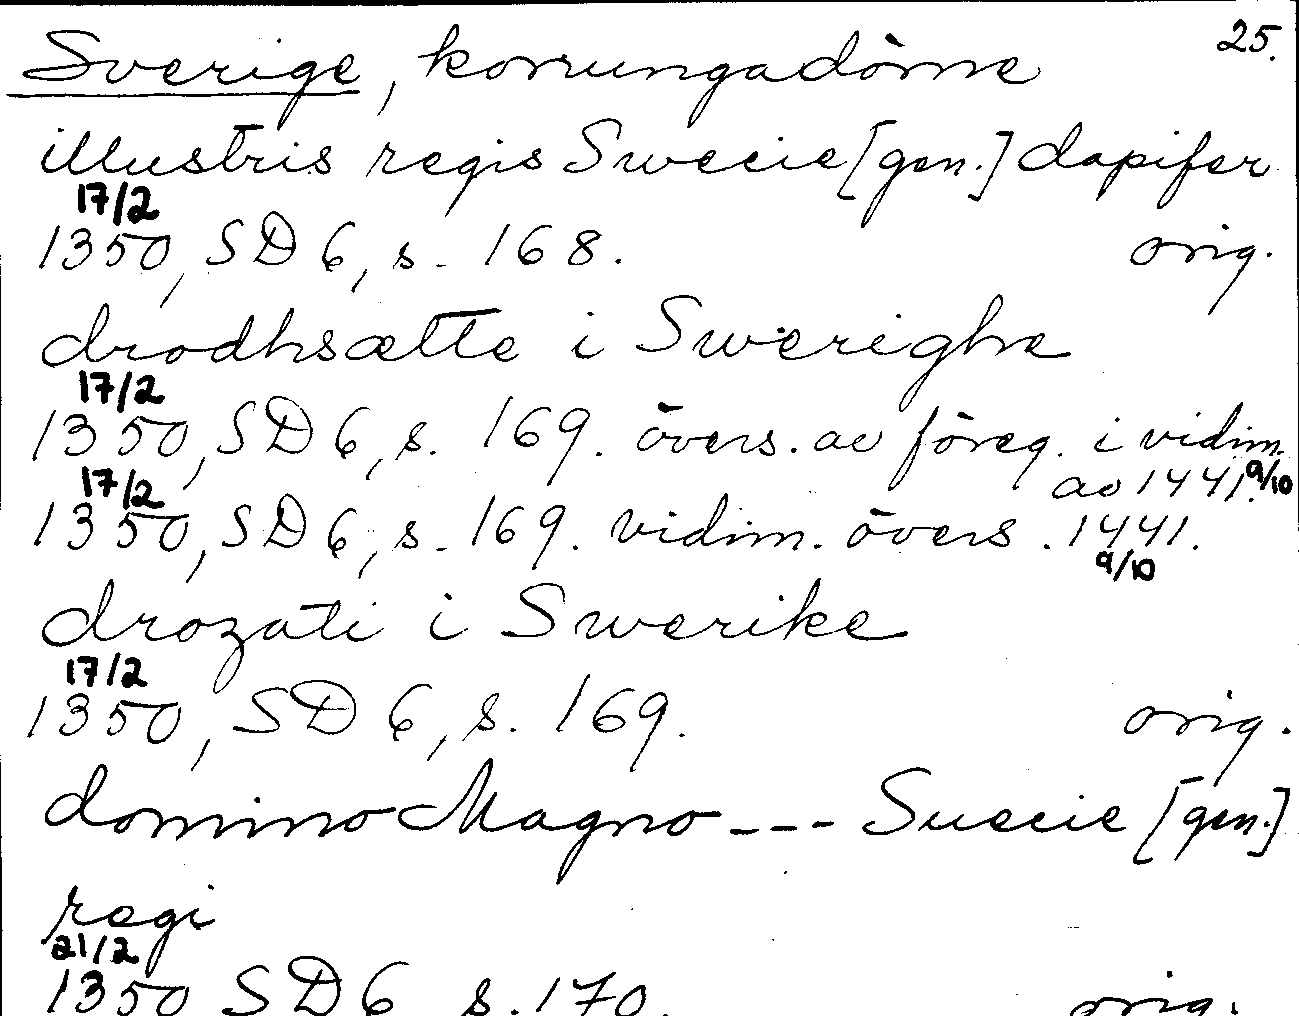 25.
Sverige, konungadöme
illustris regis Swecie [gen.] dapifer
17/2
1350, SD 6, s. 168. orig.
drodhsætte i Swerighe
17/2
1350, SD 6, s. 169. övers. av föreg. i vidim.
av 1441. 9/10
17/2
1350, SD 6, s. 169. vidim. övers. 1441.
9/10
drozati i Swerike
17/2
1350, SD 6, s. 169. orig.
domino Magno --- Suecie [gen.]
regi
21/2
1350 SD 6 s. 170. orig.